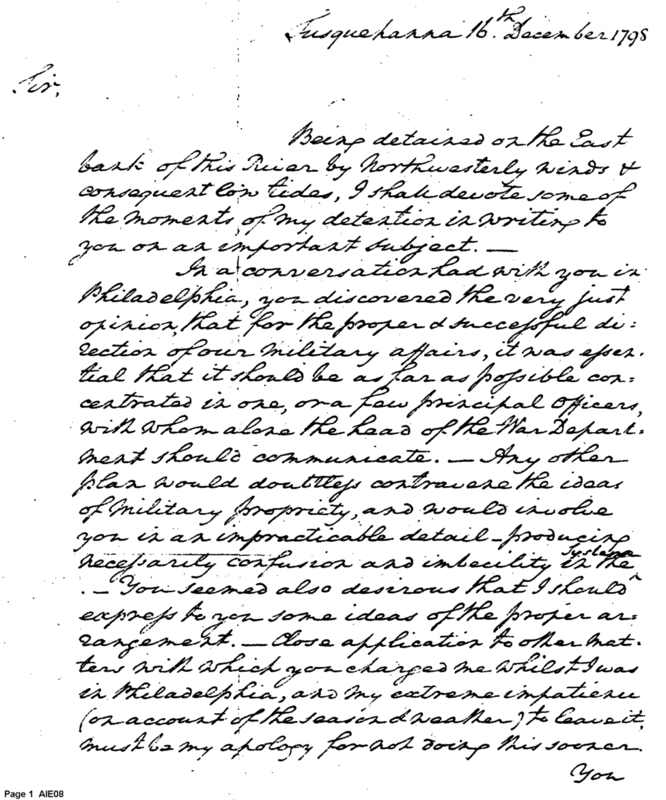 Susquehanna 16.th December 1798
Sir,
Being detained on the East
bank of this River by Northwesterly winds &
consequent low tides, I shall devote some of
the moments, of my detention in writing to
you on an important subject. —
In a conversation had with you in
Philadelphia, you discovered the very just
opinion, that for the proper & successful di=
rection of our military affairs, it was essen=
tial that it should be as far as possible con=
centrated in one, or a few principal Officers,
with whom alone the head of the War Depart=
ment should communicate. — Any other
plan would doubtless contravene the ideas
of Military propriety, and would involve
you in an impracticable detail — producing
necessarily confusion and imbecility in the System
. — You seemed also desirous that I should
express to you some ideas of the proper ar=
rangement. — Close application to other mat=
ters with which you charged me whilst I was
in Philadelphia, and my extreme impatience
(on account of the season & weather) to leave it,
must be my apology for not doing this sooner.
You
Page 1 AIE08